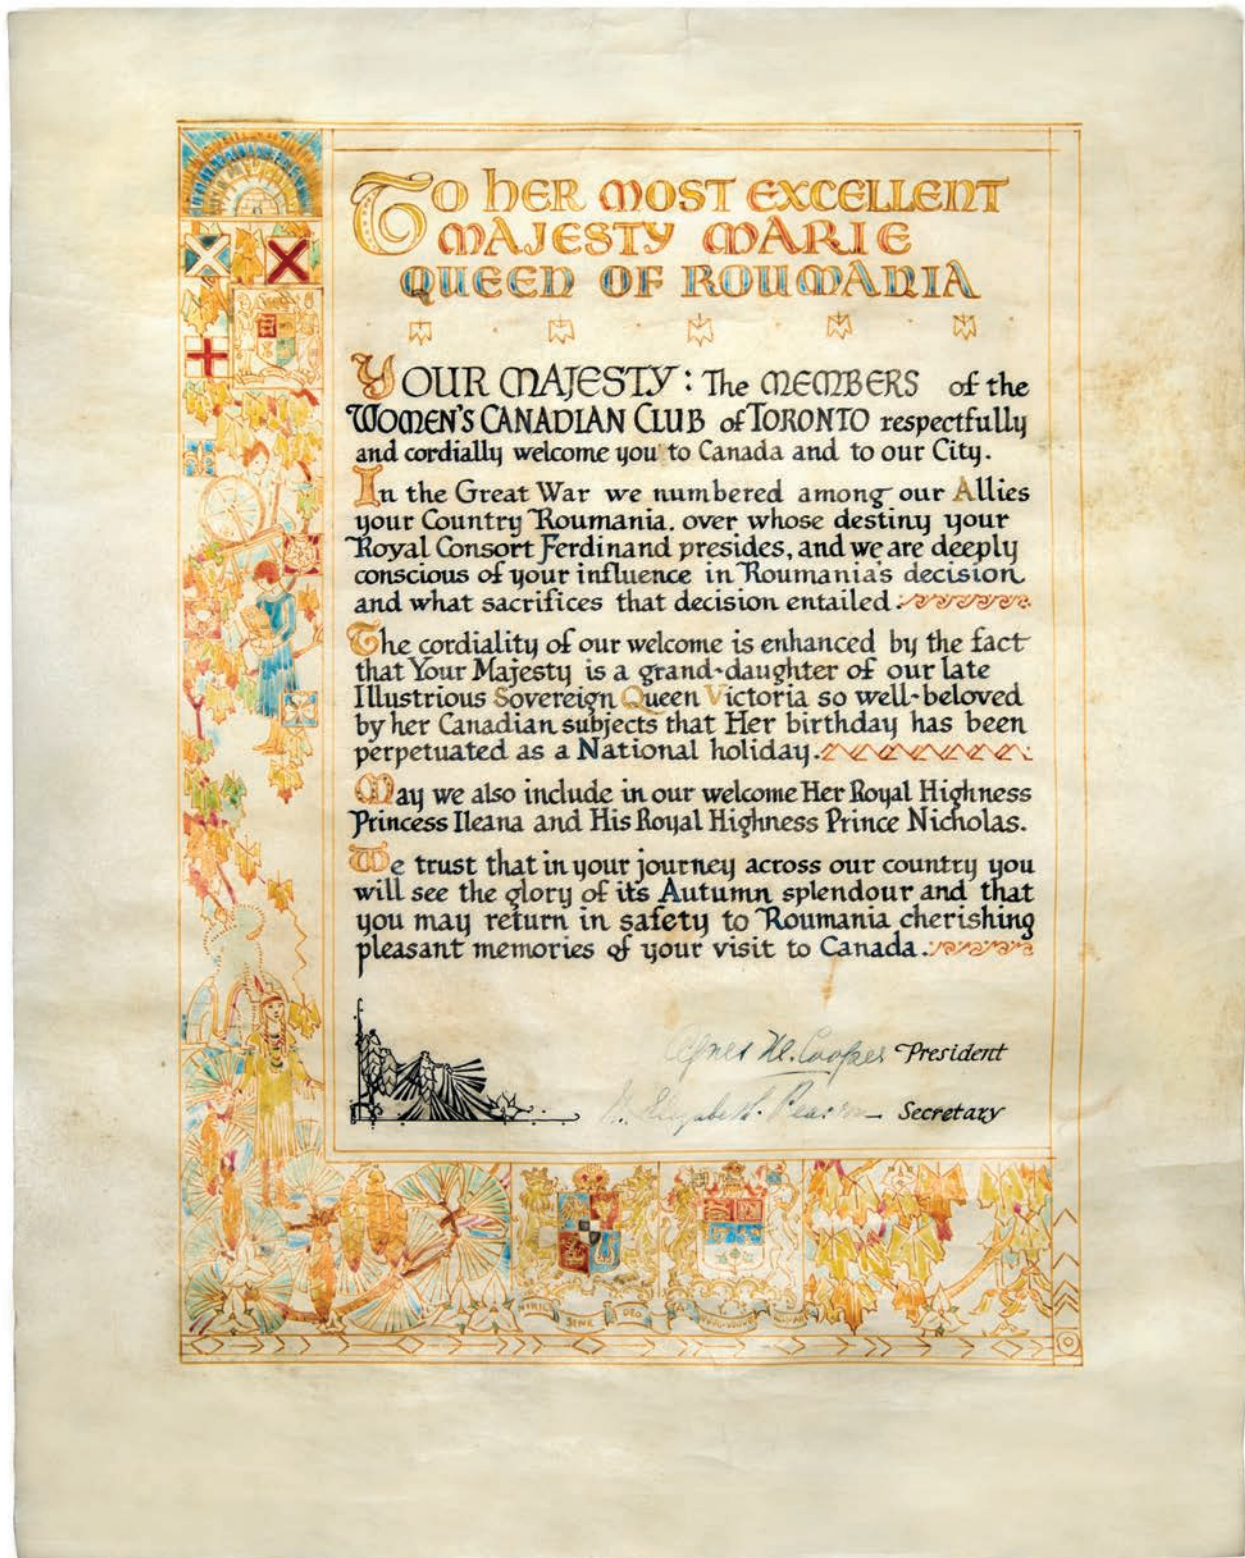 To her most excellent
Majesty Marie
Queen of Roumania
Your Majesty: The Members of the
Women's Canadian Club of Toronto respectfully
and cordially welcome you to Canada and to our City.
In the Great War we numbered among our Allies
your Country Roumania. over whose destiny your
Royal Consort Ferdinand presides, and we are deeply
conscious of your influence in Roumania's decision
and what sacrifices that decision entailed.
The cordiality of our welcome is enhanced by the fact
that Your Majesty is a grand-daughter of our late
Illustrious Sovereign Queen Victoria so well-beloved
by her Canadian subjects that Her birthday has been
perpetuated as a National holiday.
May we also include in our welcome Her Royal Highness
Princess Ileana and His Royal Highness Prince Nicholas.
We trust that in your journey across our country you
will see the glory of its Autumn splendour and that
you may return in safety to Roumania cherishing
pleasant memories of your visit to Canada.
Agnes President
Elizabeth Secretary
NIHIL SINE DEO